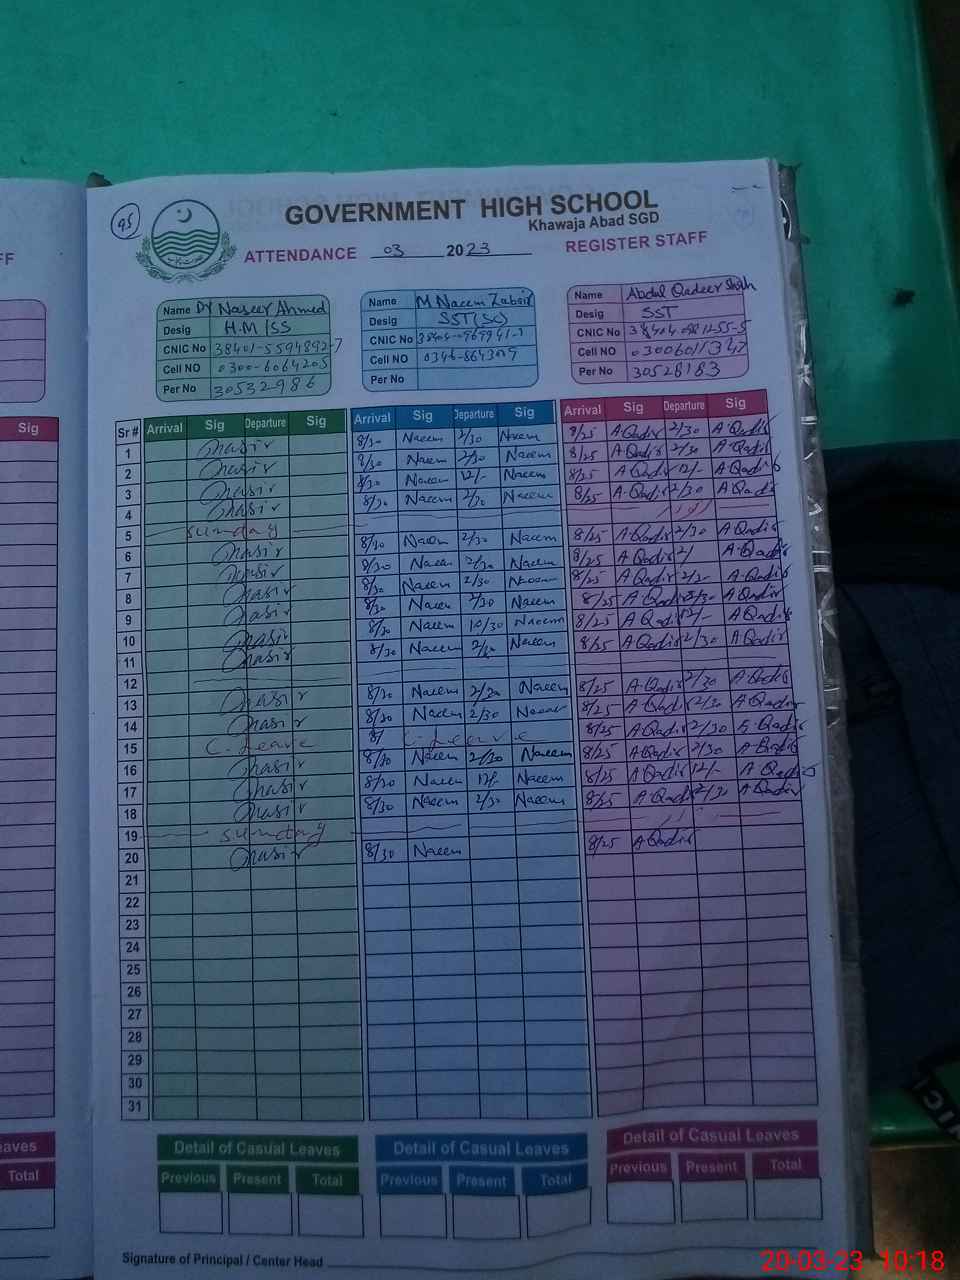 95
GOVERNMENT HIGH SCHOOL
Khawaja Abad SGD
FF ATTENDANCE 03 2023 REGISTER STAFF
Name Dr Naseer Ahmed Name M Naeem Name Abdul Qadeer Shah
Desig H.M /SS Desig SST(Sc) Desig SST
CNIC No 38401-5594892-7 CNIC No CNIC No
Cell NO 0300-6064205 Cell NO Cell NO
Per No 30532986 Per No Per No 30528183
Sig Sr # Arrival Sig Departure Sig Arrival Sig Departure Sig Arrival Sig Departure Sig
1 8/30 Naeem 2/30 Naeem 8/25 A Qadir 2/30 A Qadir
2 8/30 Naeem 2/30 Naeem 8/25 A Qadir 2/30 A Qadir
3 8/30 Naeem 12/- Naeem 8/25 A Qadir 12/- A Qadir
4 8/30 Naeem 2/30 Naeem 8/25 A Qadir 2/30 A Qadir
5 Sunday
6 8/30 Naeem 2/30 Naeem 8/25 A Qadir 2/30 A Qadir
7 8/30 Naeem 2/30 Naeem 8/25 A Qadir 2/ A Qadir
8 8/30 Naeem 2/30 Naeem 8/25 A Qadir A Qadir
9 8/30 Naeem 2/30 Naeem 8/25 A Qadir 2/30 A Qadir
10 8/30 Naeem 10/30 Naeem 8/25 A Qadir 12/- A Qadir
11 8/30 Naeem 2/30 Naeem 8/25 A Qadir 2/30 A Qadir
12
13 8/30 Naeem 2/30 Naeem 8/25 A Qadir 2/30 A Qadir
14 8/30 Naeem 2/30 Naeem 8/25 A Qadir 2/30 A Qadir
15 C. Leave 8/ C. Leave 8/25 A Qadir 2/30 A Qadir
16 8/30 Naeem 2/30 Naeem 8/25 A Qadir 2/30 A Qadir
17 8/30 Naeem 12/- Naeem 8/25 A Qadir 12/- A Qadir
18 8/30 Naeem 2/30 Naeem 8/25 A Qadir 2/30 A Qadir
19 Sunday
20 8/30 Naeem 8/25 A Qadir
21
22
23
24
25
26
27
28
29
30
31
eaves Detail of Casual Leaves Detail of Casual Leaves Detail of Casual Leaves
Total Previous Present Total Previous Present Total Previous Present Total
Signature of Principal / Center Head
20-03-23 10:18